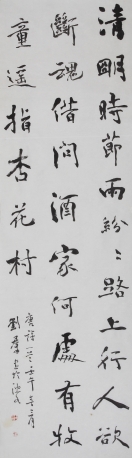 清明時節雨紛紛路上行人欲
斷魂借問酒家何處有牧
童遥指杏花村
唐詩一首壬午
劉